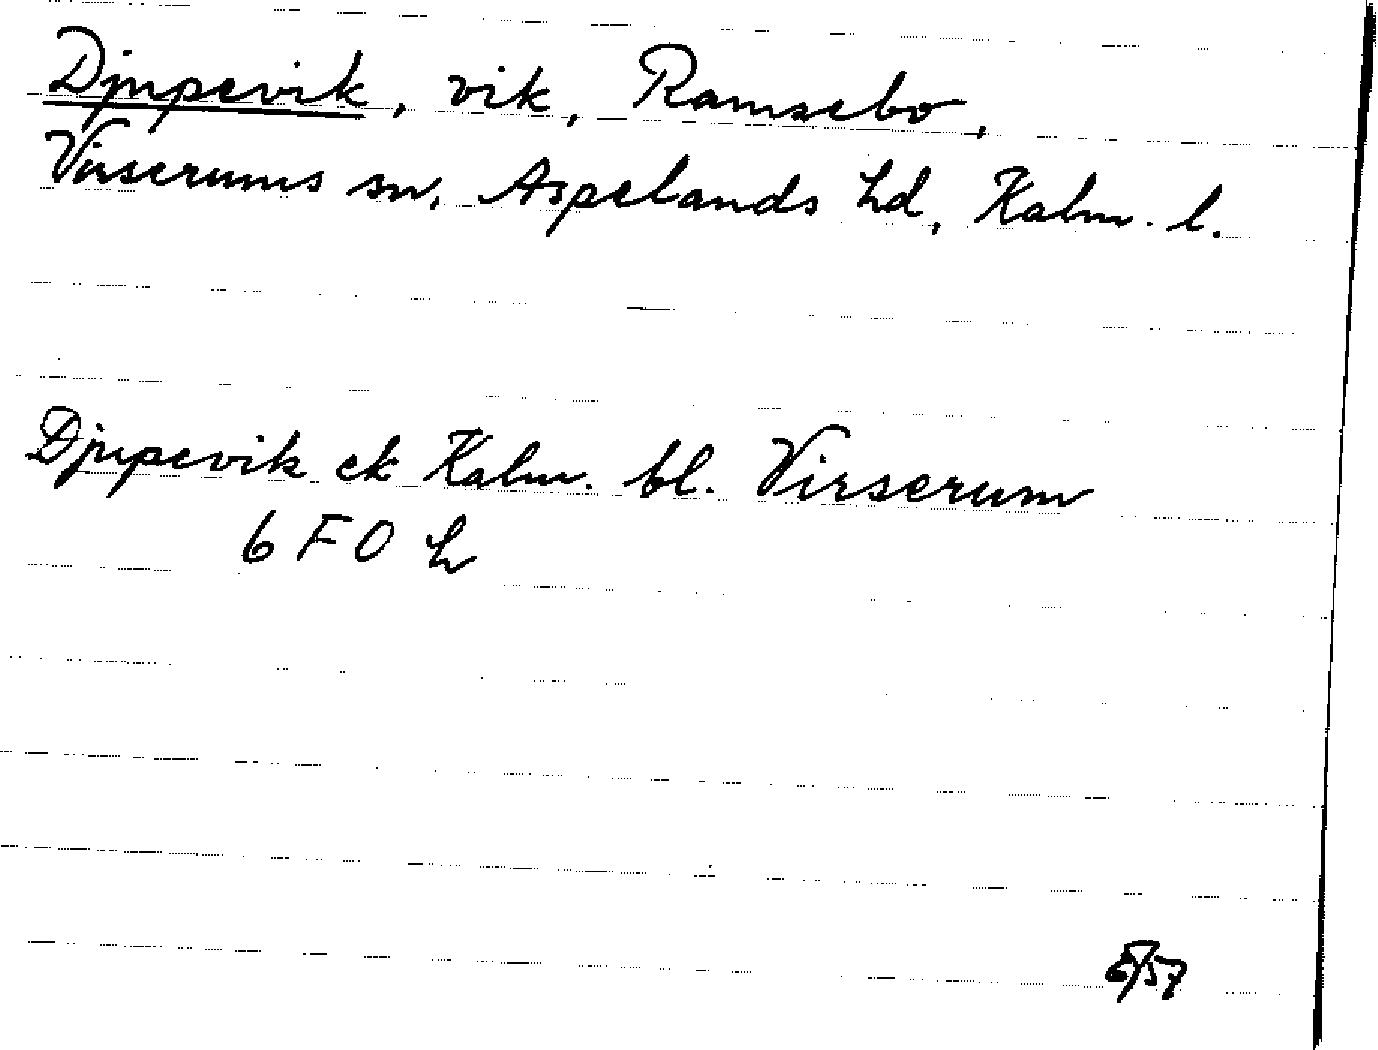 Djupevik, vik, Ramsebo,
Virserums sn, Aspelands hd, Kalm. l.
Djupevik ek Kalm. bl. Virserum
6 F 0 h